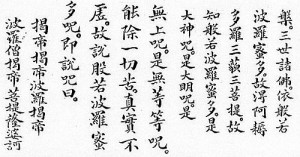 槃。三世諸佛。依般若
波羅蜜多故。得阿耨
多羅三藐三菩提。故
知般若波羅蜜多。是
大神呪。是大明呪。是
無上呪。是無等等呪。
能除一切苦。真實不
虛。故說般若波羅蜜
多呪。即說呪曰。
揭帝揭帝波羅揭帝
波羅僧揭帝菩提薩婆訶